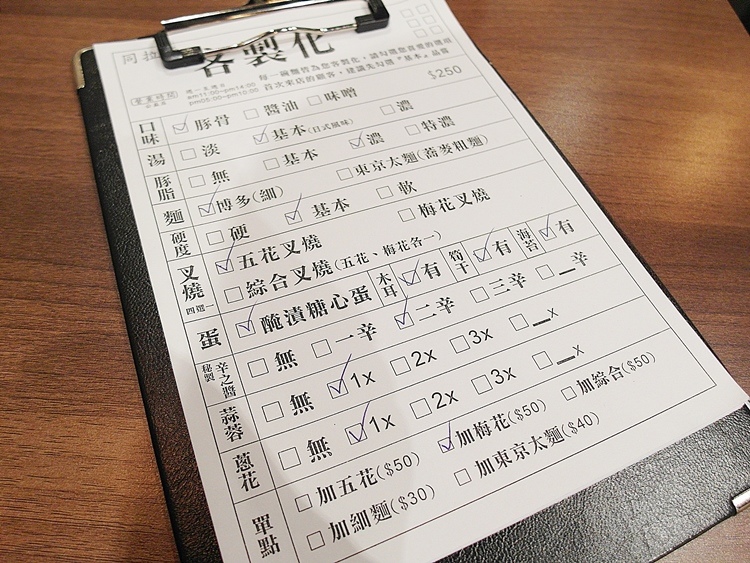 客製化
每一碗麵皆為您客製化，請勾選您喜愛的選項
首次來店的顧客，建議先勾選『基本』品嚐
營業時間 週一至週日
am11:00~pm14:00
pm05:00~pm10:00
$250
口味 豚骨 醬油 味噌
湯 淡 基本(日式風味) 濃
豚脂 無 基本 濃 特濃
麵 博多(細) 東京太麵(蕎麥粗麵)
硬度 硬 基本 軟
叉燒 四選一 五花叉燒 梅花叉燒
綜合叉燒(五花、梅花各一)
蛋 醃漬糖心蛋 木耳 有 筍干 有 海苔 有
秘製 辛之醬 無 一辛 二辛 三辛 __辛
蒜蓉 無 1x 2x 3x __x
蔥花 無 1x 2x 3x __x
單點 加五花($50) 加梅花($50) 加綜合($50)
加細麵($30) 加東京太麵($40)